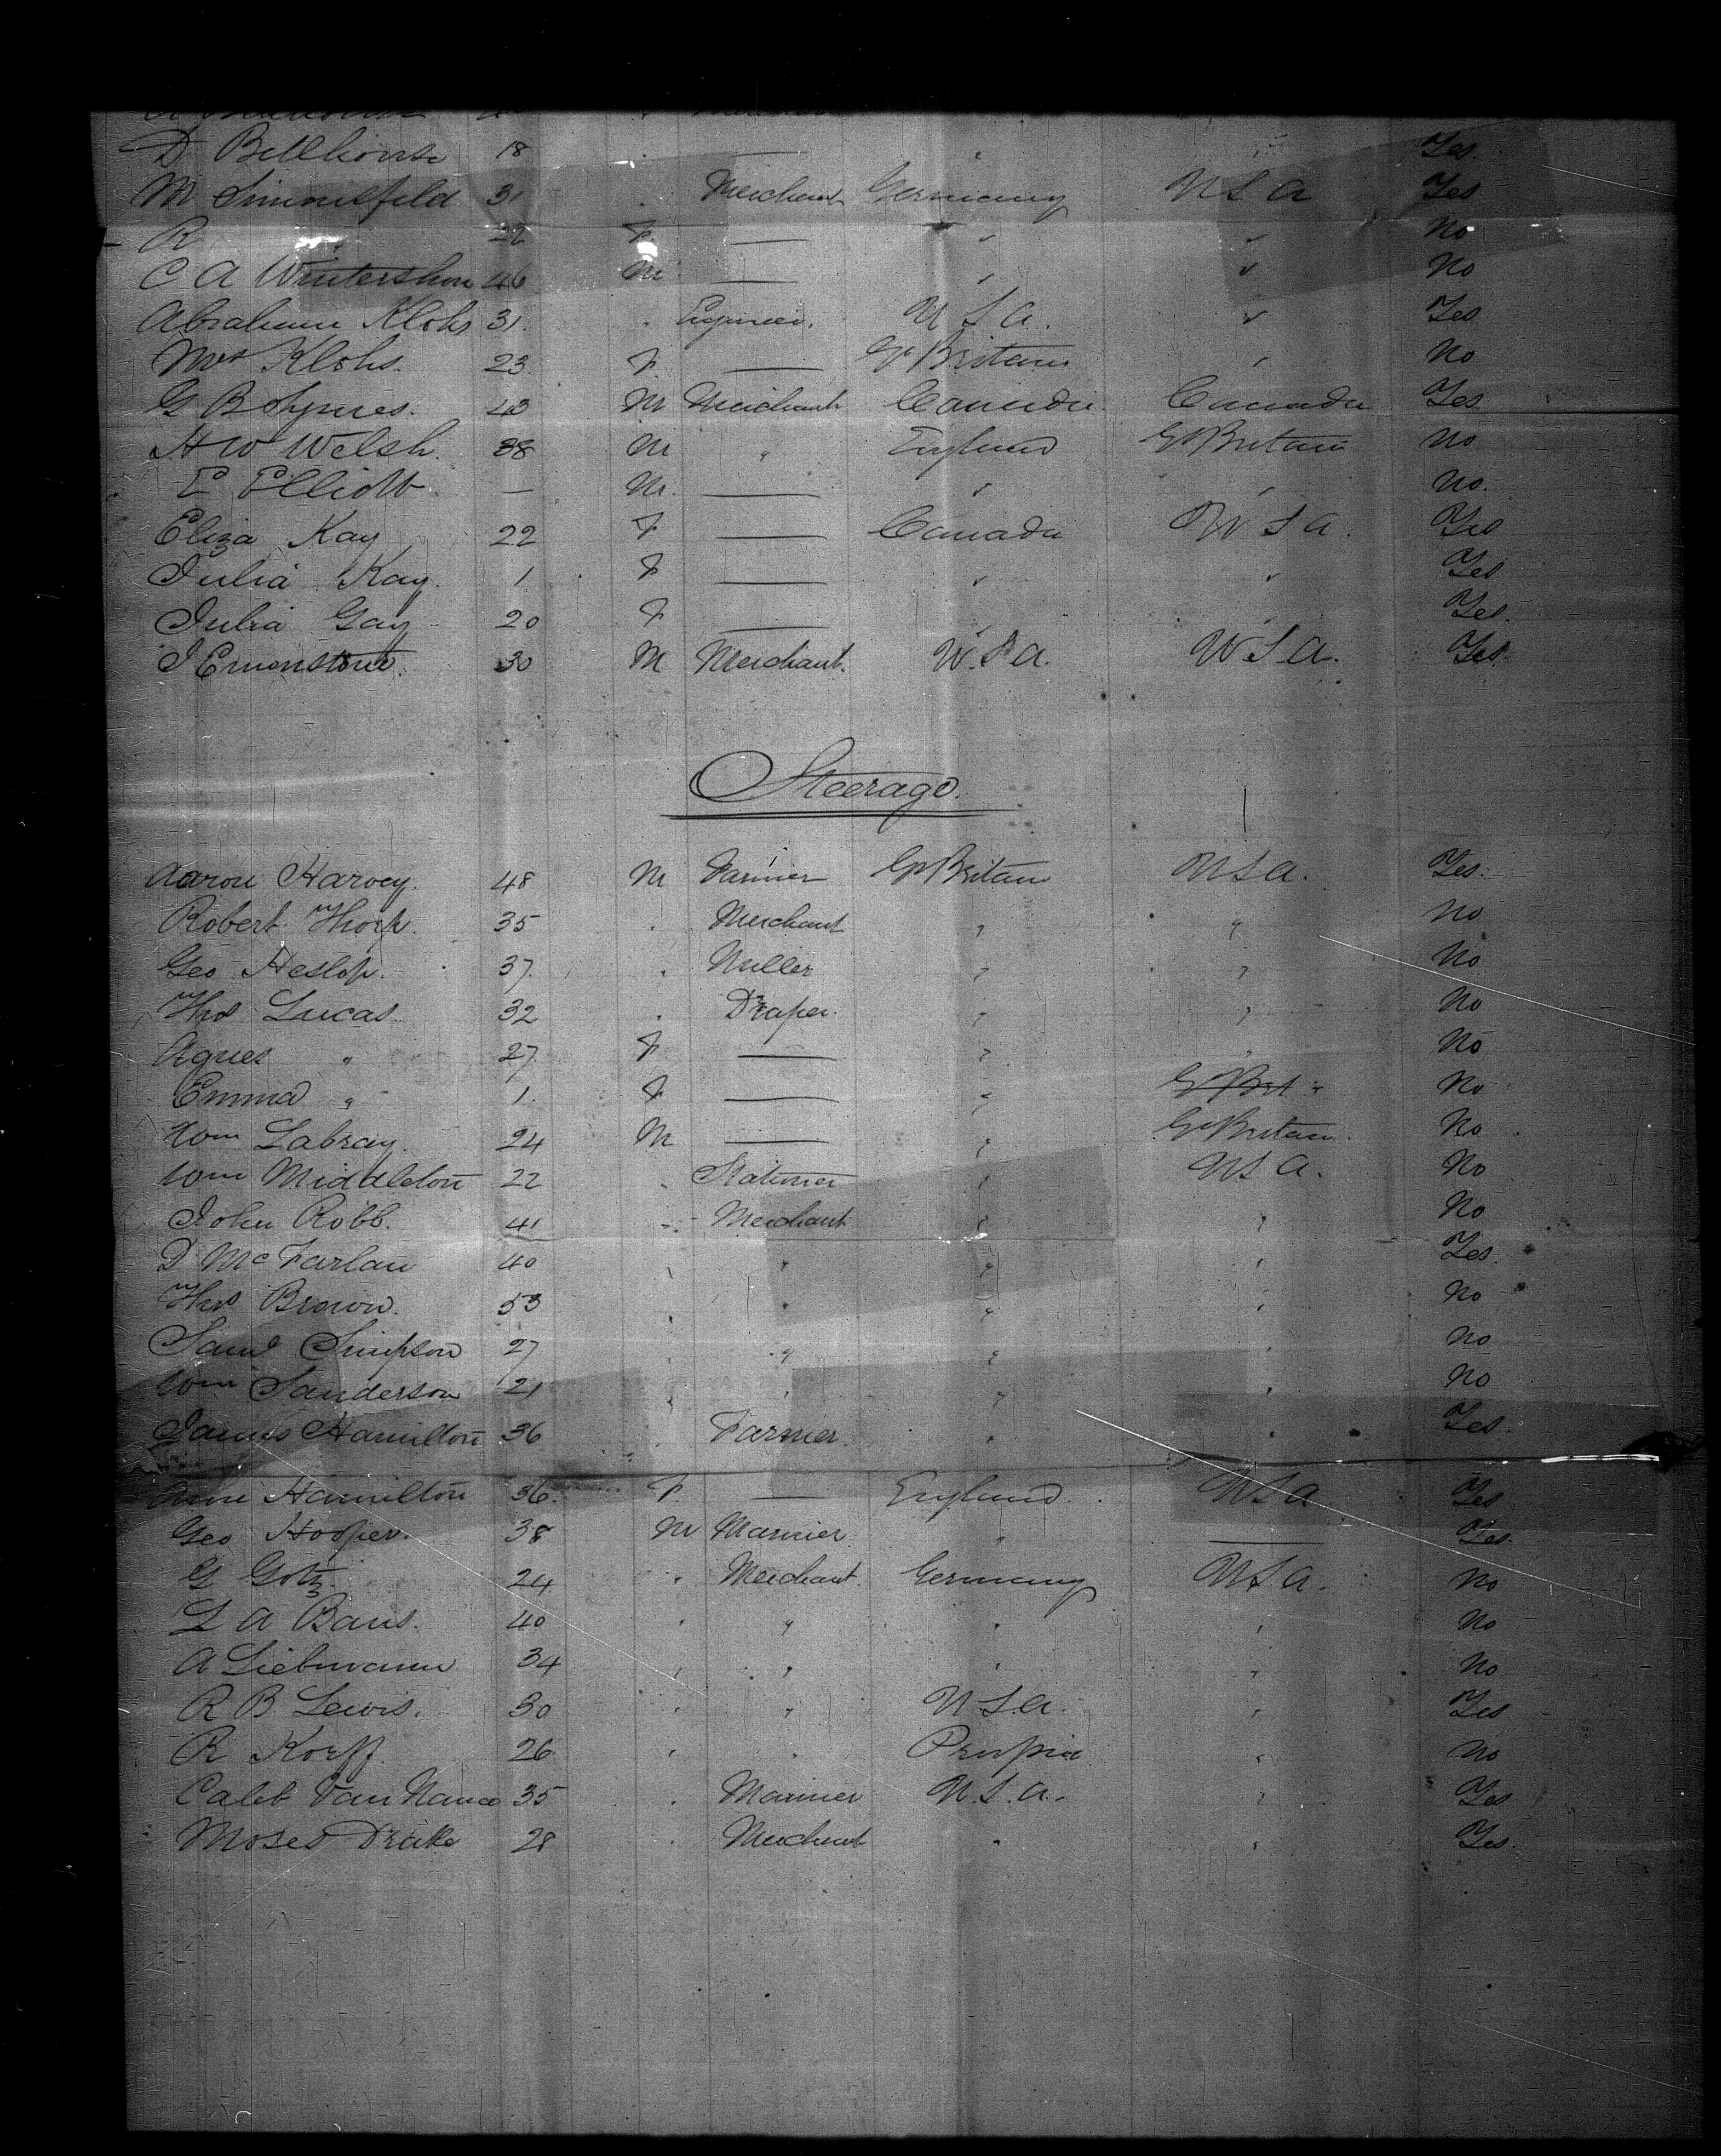 D Bellhouse 18 — " Yes.
M Simonsfeld 31 " Merchant Germany U S A Yes
R " 22 F — " " No
C A Wintershon 46 M — " " No
Abraham Klohs 31. " Engineer. U S A. " Yes
Mrs Klohs. 23 F — Gt Britain " No
G B Symes. 43 M Merchant Canada Canada Yes
H W Welsh. 38 M " England Gt Britain No
E Elliott. — M. — " " No.
Eliza Kay 22 F — Canada U S A. Yes
Julia Kay. 1 F — " " Yes
Julia Gay 20 F — " " Yes.
30 M Merchant. U.S A. U S A. Yes.
Steerage.
Aaron Harvey. 48 M Farmer Gt Britain U S A. Yes.
Robert Thorp. 35 " Merchant " " No
Geo Heslop. 37 " Miller " " No
Thos Lucas. 32 " Draper. " " No
Agnes " 27 F — " " No
Emma " 1. F — " Gt Brt " No
Wm Labray. 24 M — " Gt Britain. No
Wm Middleton 22 " Stationer " U S A. No
John Robb. 41 " Merchant " " No
D McFarlan 40 " " " " Yes.
Thos Brown. 53 " " " " No
Saml Simpson 27 " " " " No
Wm Sanderson 21 " " " " No
James Hamilton 36 " Farmer. " " Yes.
Ann Hamilton 36. F. — England. U S A Yes
Geo Hooper. 38 M Mariner " — Yes.
G Gotz. 24 " Merchant. Germany U S A. No
L A Baus. 40 " " " " No
A Liebmann 34 " " " " No
R B Lewis. 30 " " U S.A. " Yes
R Korff. 26 " " Prussia " No
Caleb Van Name 35 " Mariner U.S.A. " Yes
Moses Drake 28 " Merchant " " Yes.